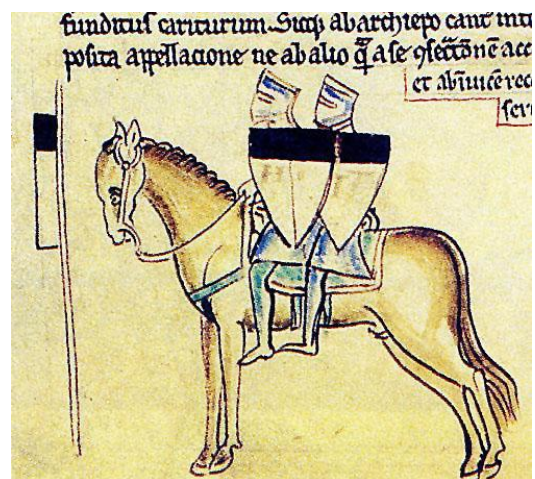 funditus cariturum. Sicq; ab archiep̄o cant̄ int
posita appellacione ne ab alio q̄ a se ꝯsec̄ōnē acc
et abīuicē rec